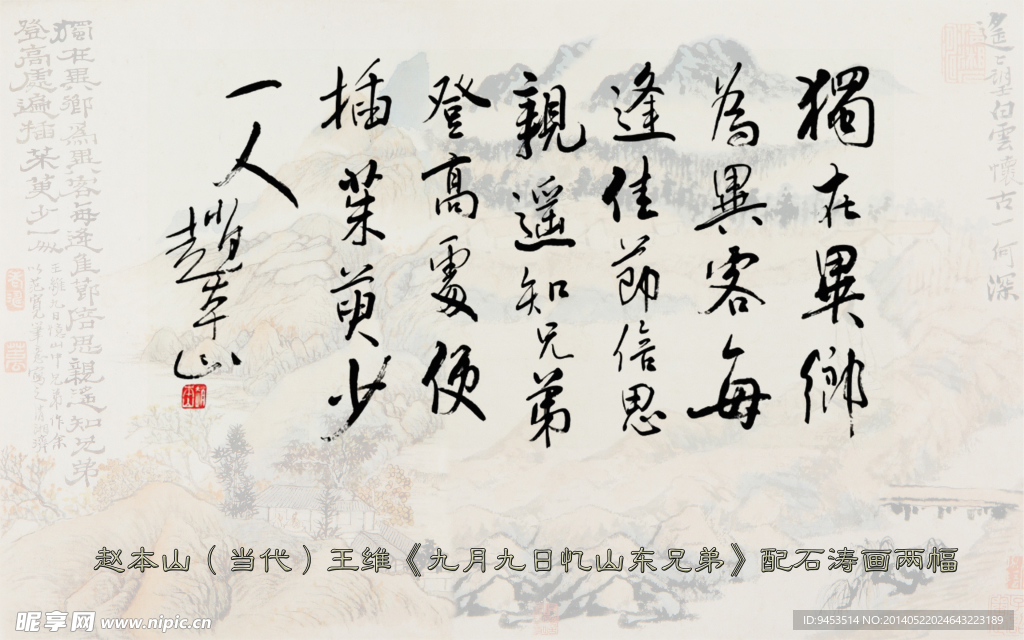 獨在異鄉
為異客每
逢佳節倍思
親遥知兄弟
登高處便
插茱萸少
一人
趙本山
遙〻望白雲懷古一何深
獨在異鄉為異客每逢佳節倍思親遙知兄弟
登高處遍插茱萸少一人
赵本山（当代）王维《九月九日忆山东兄弟》配石涛画两幅
昵享网 www.nipic.cn
ID:9453514 NO:20140522024643223189